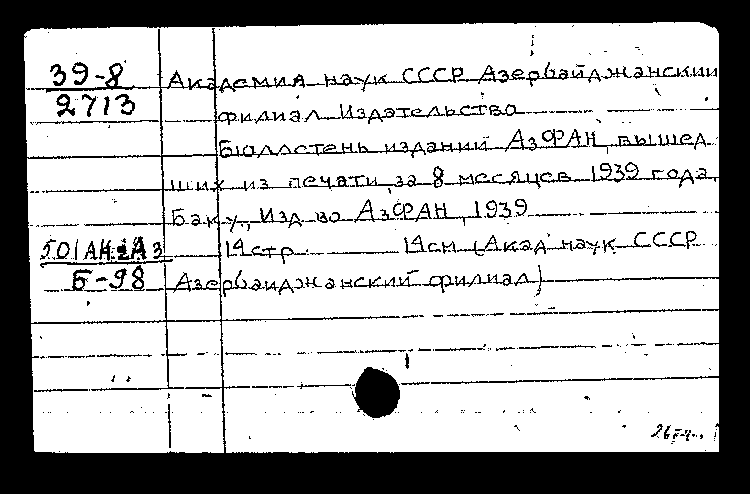 39-8 Академия наук СССР Азербайджанский
2713 филиал Издательство
Бюллетень изданий АзФАН, вышед
ших из печати за 8 месяцев 1939 года
Баку, Изд во АзФАН, 1939
14стр 14см (Акад наук СССР
Б-98 Азербайджанский филиал)